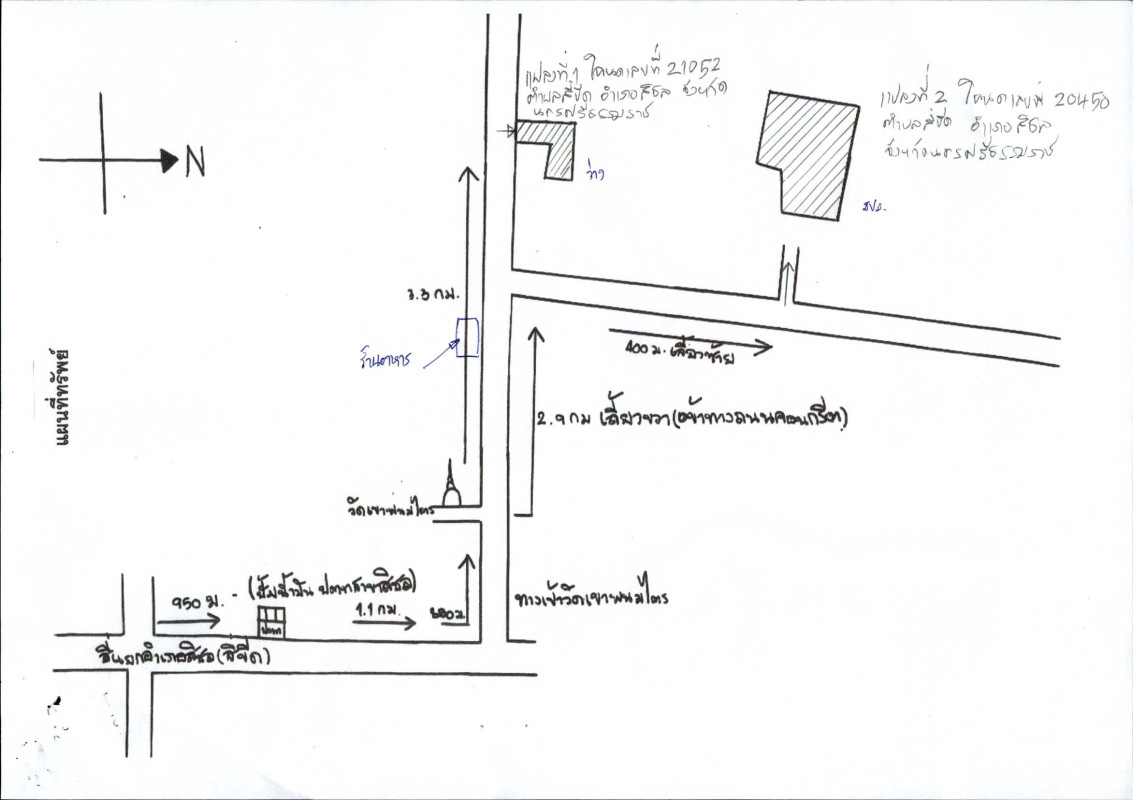 แปลงที่ 1 โฉนดเลขที่ 21052
ตำบลสี่ขีด อำเภอสิชล จังหวัด
นครศรีธรรมราช
แปลงที่ 2 โฉนดเลขที่ 20450
ตำบลสี่ขีด อำเภอสิชล
จังหวัดนครศรีธรรมราช
N
ว่าง
สปส.
3.3 กม.
ร้านอาหาร
400 ม. เลี้ยวซ้าย
แผนที่ทรัพย์
2.9 กม เลี้ยวขวา(เข้าทางถนนคอนกรีต)
วัดเขาพนมไตร
950 ม. - (ปั้มน้ำมัน ปตท สาขาสิชล)
1.1 กม.
ปตท
ทางเข้าวัดเขาพนมไตร
สี่แยกอำเภอสิชล(สี่ขีด)